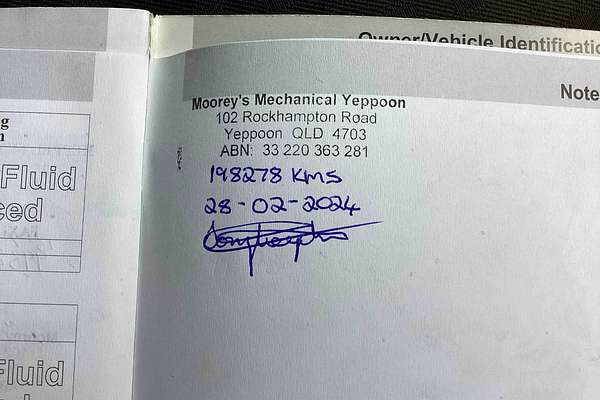 Owner/Vehicle Identificatio
Note
g
n
Fluid
ced
Fluid
Moorey's Mechanical Yeppoon
102 Rockhampton Road
Yeppoon QLD 4703
ABN: 33 220 363 281
198278 KMS
28-02-2024